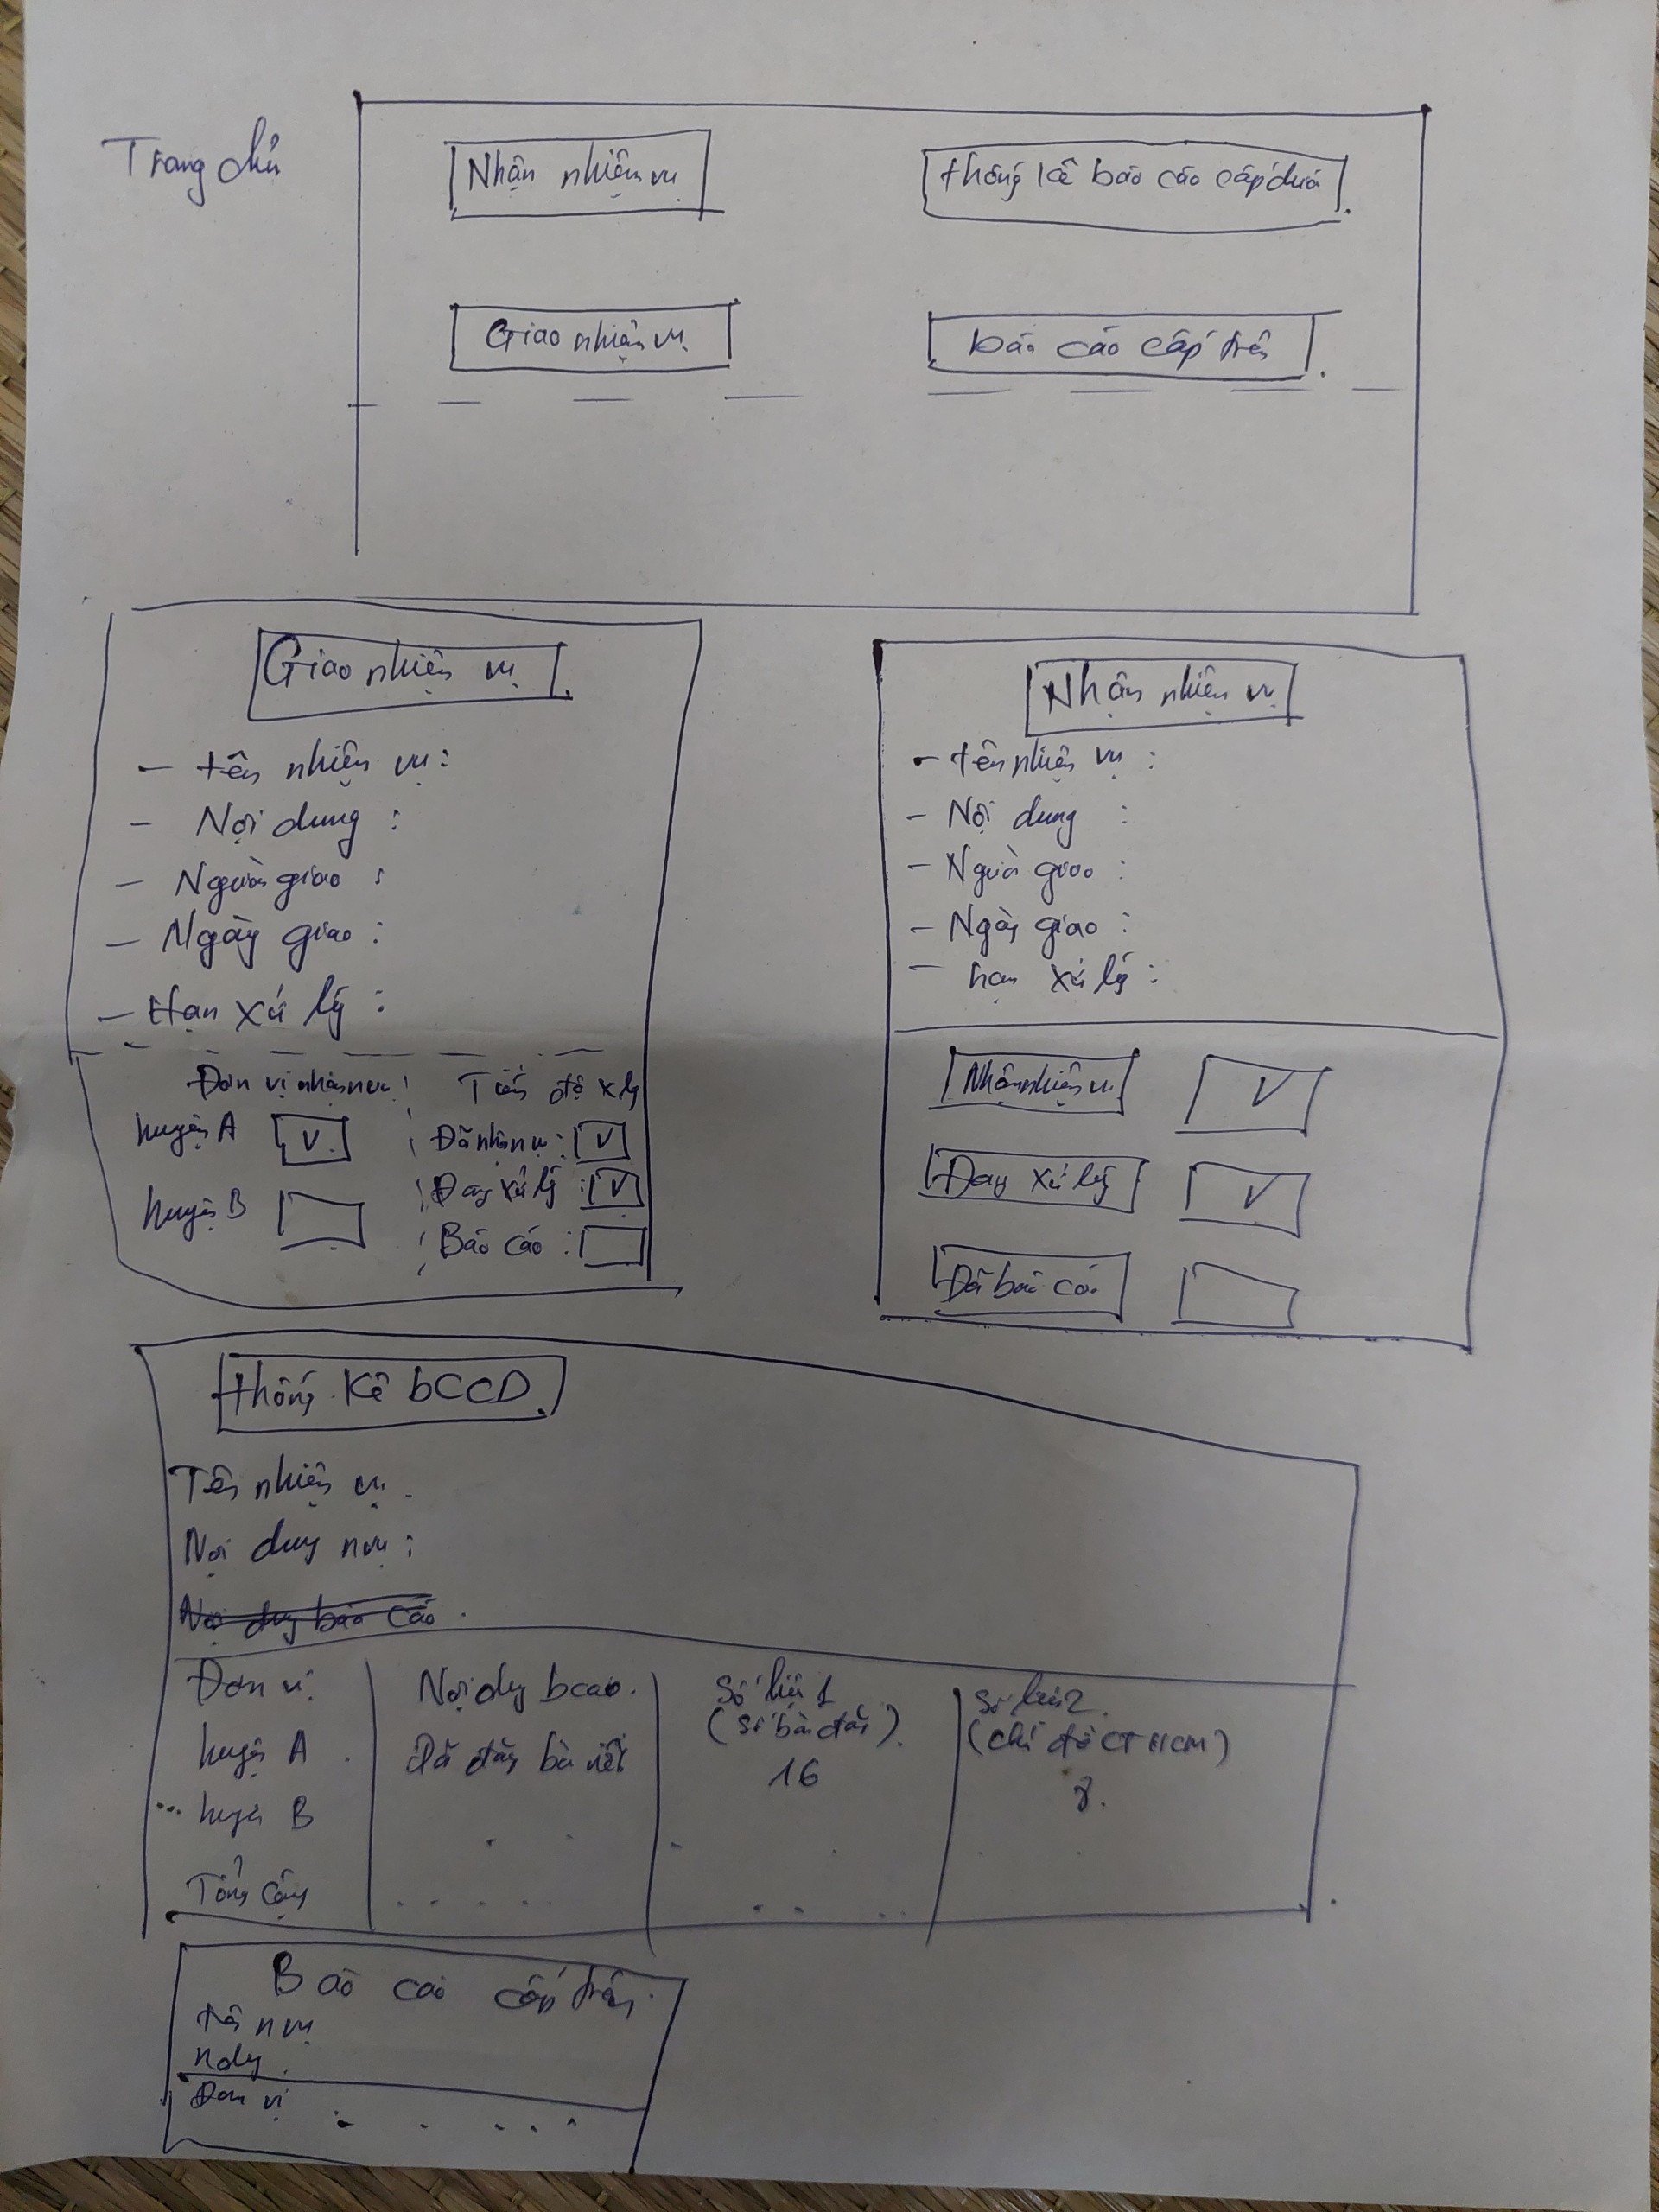 Trang chủ
Nhận nhiệm vụ
thống kê báo cáo cấp dưới
Giao nhiệm vụ
báo cáo cấp trên
Giao nhiệm vụ
- tên nhiệm vụ :
- Nội dung :
- Người giao :
- Ngày giao :
- Hạn xử lý :
Đơn vị nhận nvụ
Tiến độ xlý
huyện A V
Đã nhận nv : V
Đang xử lý : V
huyện B
Báo cáo :
Nhận nhiệm vụ
- tên nhiệm vụ :
- Nội dung :
- Người giao :
- Ngày giao :
- hạn xử lý :
Nhận nhiệm vụ V
Đang xử lý V
Đã báo cáo
thống kê bCCD
Tên nhiệm vụ
Nội dung nvụ :
Nội dung báo cáo
Đơn vị
Nội dung bcáo
Số liệu 1
(số bài đăng)
Số liệu 2
huyện A
Đã đăng bài viết
16
8
... huyện B
Tổng cộng
Báo cáo cấp trên
tên nvụ
ndung
Đơn vị